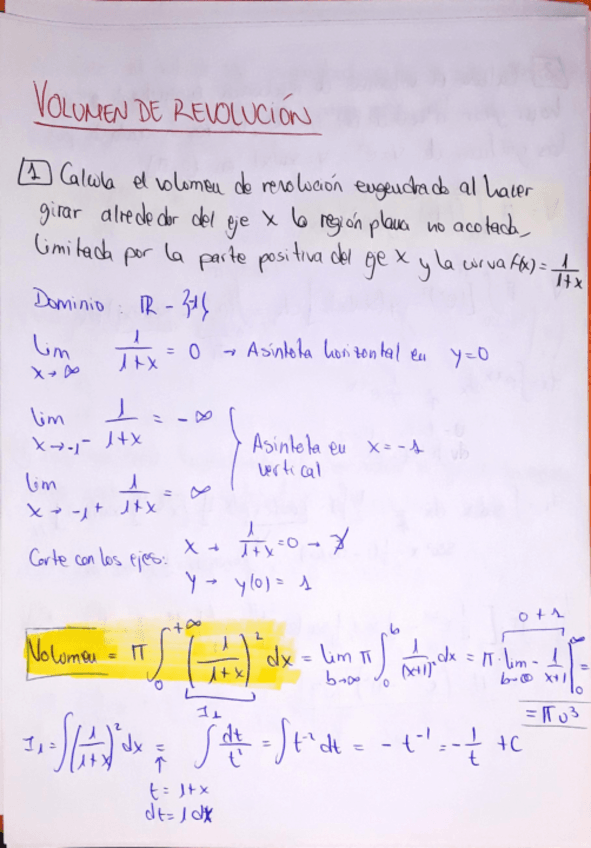 VOLUMEN DE REVOLUCIÓN
1 Calcula el volumen de revolución engendrado al hacer
girar alrededor del eje x la región plana no acotada,
limitada por la parte positiva del eje x y la curva f(x) = 1/(1+x)
Dominio: R - {-1}
lim x→∞ 1/(1+x) = 0 → Asíntota horizontal en y=0
lim x→-1⁻ 1/(1+x) = -∞
Asíntota en x=-1
vertical
lim x→-1⁺ 1/(1+x) = ∞
Corte con los ejes: x → 1/(1+x) = 0 → ∄
y → y(0) = 1
0+1
Volumen = π ∫₀^{+∞} (1/(1+x))² dx = lim b→∞ π ∫₀^b 1/(x+1)² dx = π · lim b→∞ - 1/(x+1) |₀^∞ =
I₁
= π u³
I₁ = ∫ (1/(1+x))² dx = ∫ dt/t² = ∫ t⁻² dt = - t⁻¹ = - 1/t + C
t = 1+x
dt = 1 dx